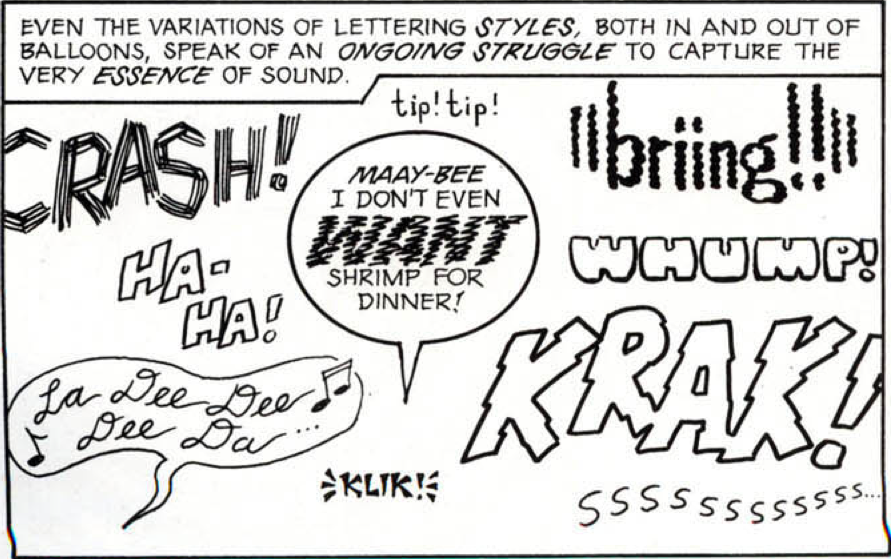 EVEN THE VARIATIONS OF LETTERING STYLES, BOTH IN AND OUT OF
BALLOONS, SPEAK OF AN ONGOING STRUGGLE TO CAPTURE THE
VERY ESSENCE OF SOUND.
tip! tip!
CRASH!
briing!!
MAAY-BEE
I DON'T EVEN
WANT
SHRIMP FOR
DINNER!
HA-
HA!
WHUMP!
KRAK!
La Dee Dee
Dee Da...
KLIK!
SSSSSSSSSSSSS...